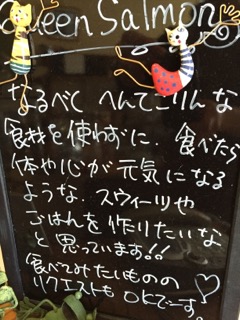 Queen Salmon
なるべく へんてこりんな
食材を使わずに、食べたら
体や心が元気になる
ような、スウィーツや
ごはんを作りたいな
と思っています!!
食べてみたいものの
リクエストも OKでーす。